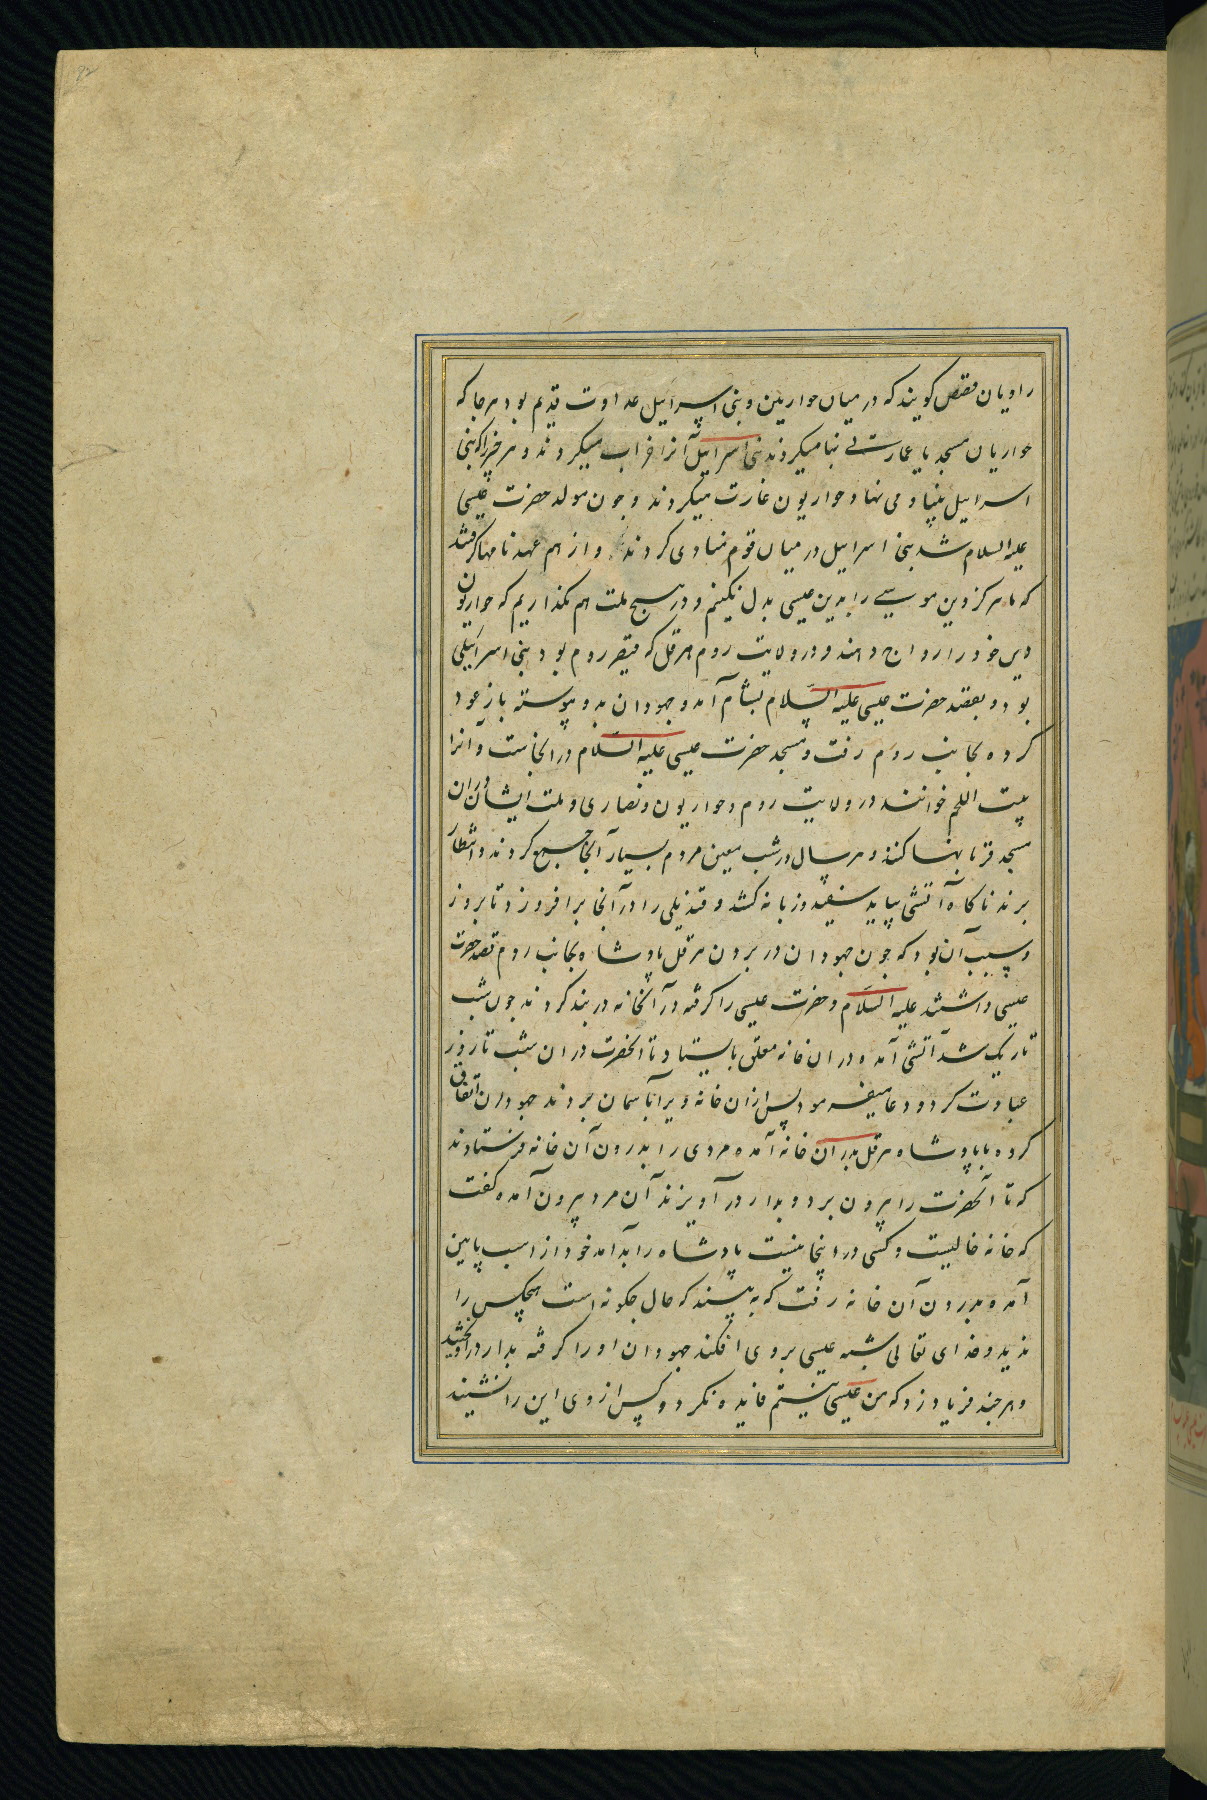 راویان قصص کویند که در میان حوارین و بنی اسراییل عداوت قدیم بود هر جا که
حواریان مسجد یا عمارتی بنا میکردند بنی اسراییل آنرا خراب میکردند و هر چیز را که بنی
اسراییل بنیاد می نهاد حواریون غارت میکردند و چون مولد حضرت عیسی
علیه السلام شد بنی اسراییل در میان قوم منادی کردند و از هم عهد نامها کرفتند
که ما هرکز دین موسی را بدین عیسی بدل نکنیم و در هیچ ملت هم نکذاریم که حواریون
دین خود را رواج دهند و در ولایت روم هرقل که قیصر روم بود بنی اسراییلی
بود و بقصد حضرت عیسی علیه السلام بشام آمد و جهودان بدو پیوسته باز عود
کرده بجانب روم رفت و مسجد حضرت عیسی علیه السلام در انجاست و آنرا
بیت اللحم خوانند در ولایت روم و حواریون و نصاری و ملت ایشان دران
مسجد قربانها کنند و هر سال در شب معین مردم بسیار آنجا جمع کردند و انتظار
برند ناکاه آتشی بیاید سفید و زبانه کشد و قندیلی را در آنجا برافروزد تا بروز
و سبب آن بود که چون جهودان در بردن هرقل پادشاه بجانب روم قصد حضرت
عیسی داشتند علیه السلام و حضرت عیسی را کرفته در آنخانه در بند کردند چون شب
تاریک شد آتشی آمد و دران خانه معلق بایستاد تا آنحضرت دران شب تا روز
عبادت کرد و دعا میفرمود پس ازان خانه ویرا بآسمان بردند جهودان اتفاق
کرده با پادشاه هرقل بدران خانه آمده مردی را بدرون آن خانه فرستادند
که تا آنحضرت را بیرون برد و بدار درآویزند آن مرد بیرون آمده کفت
که خانه خالیست و کسی در اینجا نیست پادشاه را بد آمد خود از اسب پایین
آمده بدرون آن خانه رفت که به بیند که حال چکونه است هیچکس را
ندید و خدای تعالی شبه عیسی بروی افکند جهودان او را کرفته بدار درآویختند
و هر چند فریاد زد که من عیسی نیستم فایده نکرد و کس از وی این را نشنید